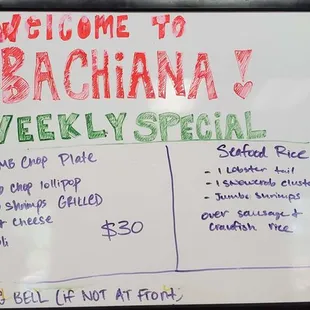 WELCOME TO
BACHIANA!
WEEKLY SPECIAL
MB Chop Plate
chop lollipop
shrimps GRILLED
cheese
$30
Seafood Rice
- 1 Lobster tail
- 1 Snowcrab cluste
- Jumbo shrimps
over sausage &
Crawfish rice
BELL (if NOT AT Front,